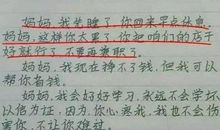 妈妈,我先睡了,你回来早点休息,
妈妈,这样你太累了,你把咱们的店干
好就行了,不要再兼职了。
妈妈,我现在挣不了钱,但我可以
帮你省钱。
妈妈,我会好好学习,永远不会学坏
以信为证,因为,你心疼我,我也不会伤
害你,不让你难过。